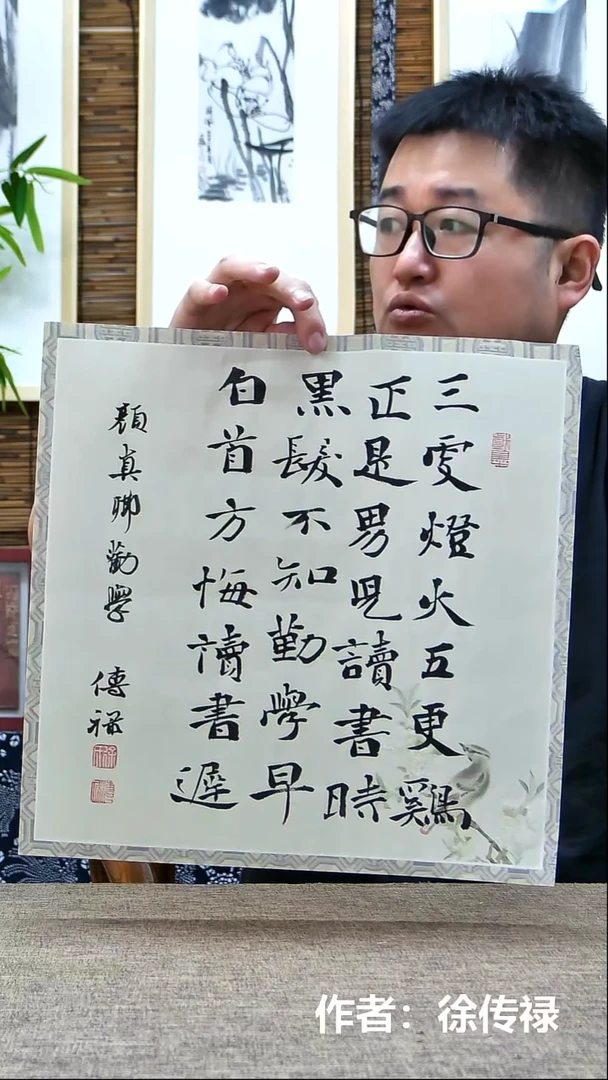 三更燈火五更鷄
正是男兒讀書時
黑髮不知勤學早
白首方悔讀書遲
顏真卿勤學 傳祿
作者：徐传禄